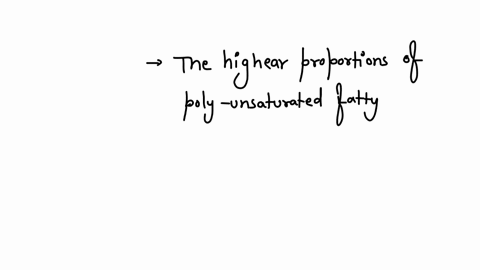 → The highear proportions of
poly-unsaturated fatty